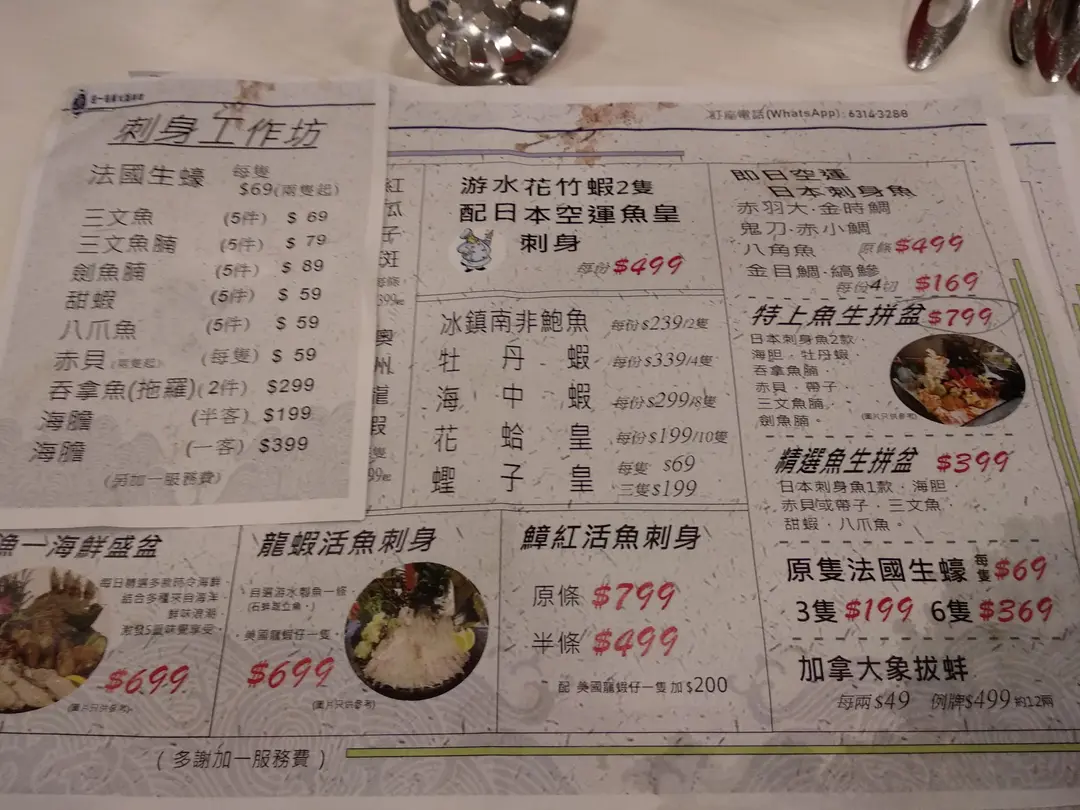 刺身工作坊
法國生蠔 每隻 $69(兩隻起)
三文魚 (5件) $ 69
三文魚腩 (5件) $ 79
劍魚腩 (5件) $ 89
甜蝦 (5件) $ 59
八爪魚 (5件) $ 59
赤貝(兩隻起) (每隻) $ 59
吞拿魚(拖羅)(2件) $299
海膽 (半客) $199
海膽 (一客) $399
(另加一服務費)
訂座電話(WhatsApp): 6316 3288
紅
瓜
子
斑
奧
州
龍
蝦
游水花竹蝦2隻
配日本空運魚皇
刺身
每份 $499
冰鎮南非鮑魚 每份$239/2隻
牡丹蝦 每份$339/4隻
海中蝦 每份$299/8隻
花蛤皇 每份$199/10隻
蟶子皇 每隻 $69
三隻$199
即日空運
日本刺身魚
赤羽大·金時鯛
鬼刀·赤小鯛
八角魚 原條 $499
金目鯛·縞鰺
每份4切 $169
特上魚生拼盆 $799
日本刺身魚2款
海胆·牡丹蝦·
吞拿魚腩·
赤貝·帶子·
三文魚腩
劍魚腩。
(圖片只供參考)
精選魚生拼盆 $399
日本刺身魚1款·海胆
赤貝或帶子·三文魚
甜蝦·八爪魚。
原隻法國生蠔 每隻 $69
3隻 $199 6隻 $369
加拿大象拔蚌
每兩$49 例牌$499 約12兩
漁一海鮮盛盆
每日精選多款時令海鮮
結合多種來自海洋
鮮味浪潮
激發5重味覺享受。
$699
(圖片只供參考)
龍蝦活魚刺身
自選游水礐魚一條
(石蚌斑立魚。)
·美國龍蝦仔一隻·
$699
(圖片只供參考)
鱆紅活魚刺身
原條 $799
半條 $499
配 美國龍蝦仔一隻 加$200
(多謝加一服務費)